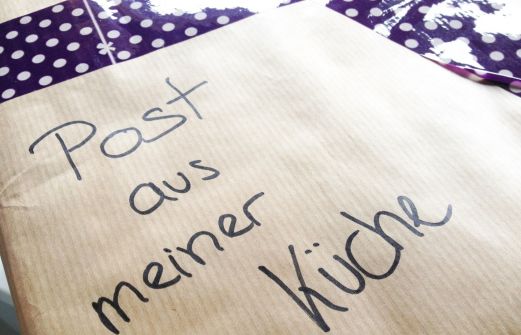 Post
aus
meiner
Küche